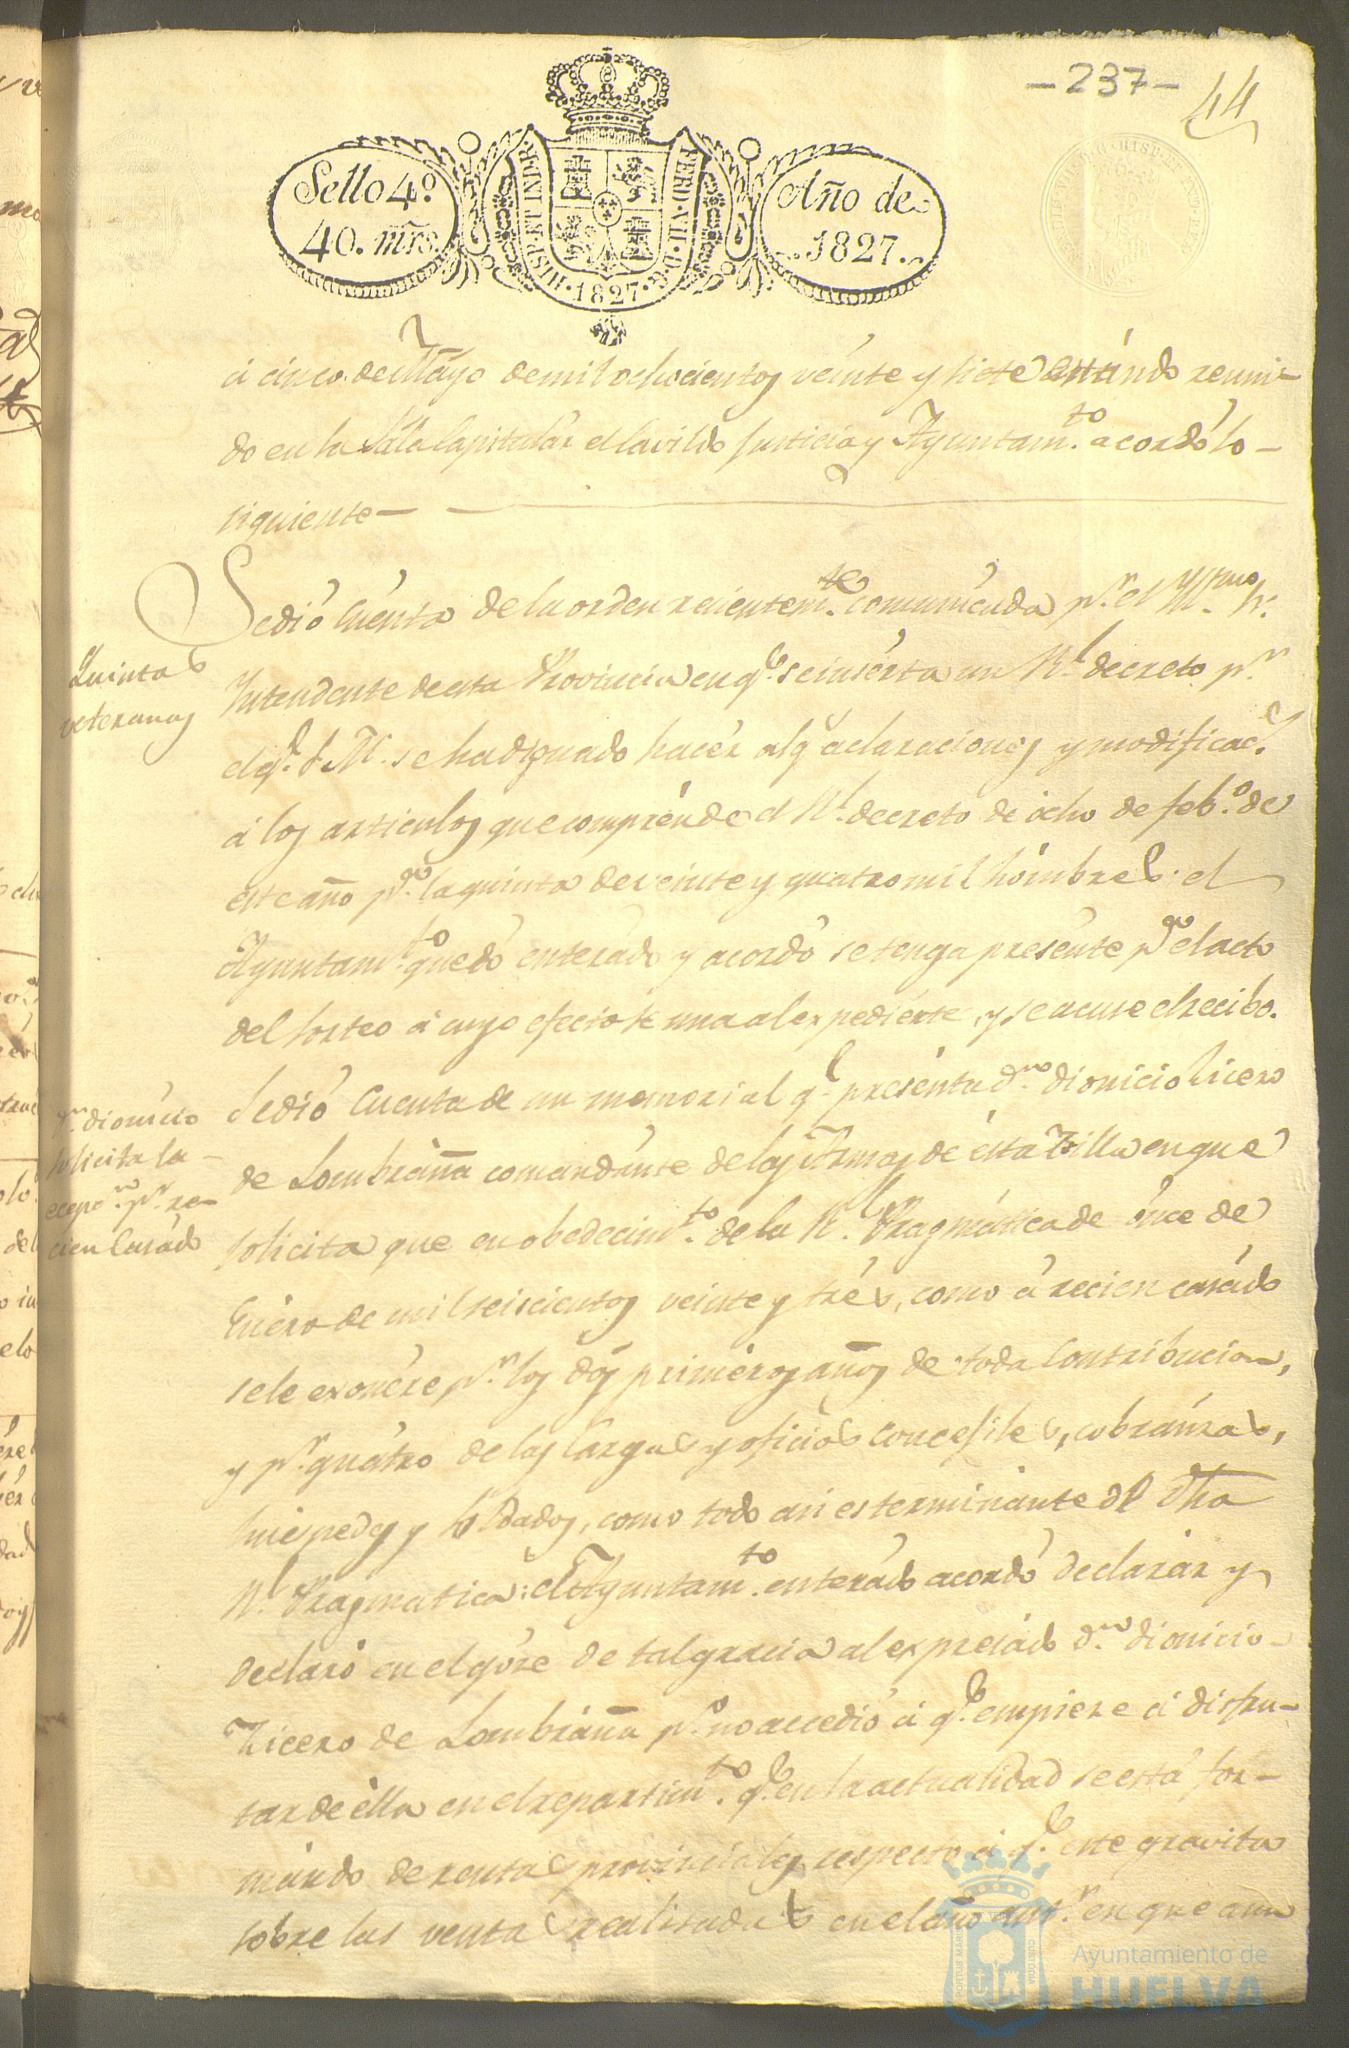 -237-
44
Sello 4º
40. mrs
HISP. ET IND. R.
FERD. VII. D. G.
1827
Año de
1827.
á cinco de Mayo de mil ochocientos veinte y siete estando reuni-
do en la Sala Capitular el Cavildo Justicia y Ayuntam.to acordó lo-
siguiente-
Se dió Cuenta de la orden recientem.te comunicada p.r el Yll.mo Sr.
Quintas
veteranos
Yntendente de esta Provincia en q.e se inserta un R.l decreto p.r
el q.e S. M. se ha dignado hacér alg.s aclaraciones y modificac.s
á los articulos que comprénde el R.l decreto de ócho de feb.o de
este año p.a la quinta de veinte y quatro mil hómbres. el
Ayuntam.to quedó enterádo y acordó se tenga presénte p.a el acto
del sorteo á cuyo efecto se una al expediénte, y se acuse el recibo.
Se dió Cuenta de un memorial q.e presénta d.n dionicio Licero
d.n dionicio
solicita la
ecepc.n p.r re-
cien Casádo
de Lombráña comandánte de las Armas de ésta Villa en que
solicita que en obedecim.to de la R.l Pragmática de ónce de
Enéro de mil seiscientos veinte y trés, como á recien casádo
se le exonére p.r los dós priméros años de toda Contribucion,
y p.r quátro de las Cárgas y oficios concejiles, cobránzas,
huéspedes y soldados, como todo asi es terminánte de dha
R.l Pragmatica: el Ayuntam.to enterádo acordó declarár y
declaró en el góze de tal gracia al expresádo d.n dionicio-
Licero de Lombráña p.o no accedió á q.e empieze á disfru-
tar de élla en el repartim.to q.e en la actualidad se está for-
mándo de rentas provinciales respecto á q.e éste gravita
sobre las ventas realisadas en el año ant.r en que aun
Ayuntamiento de
HUELVA